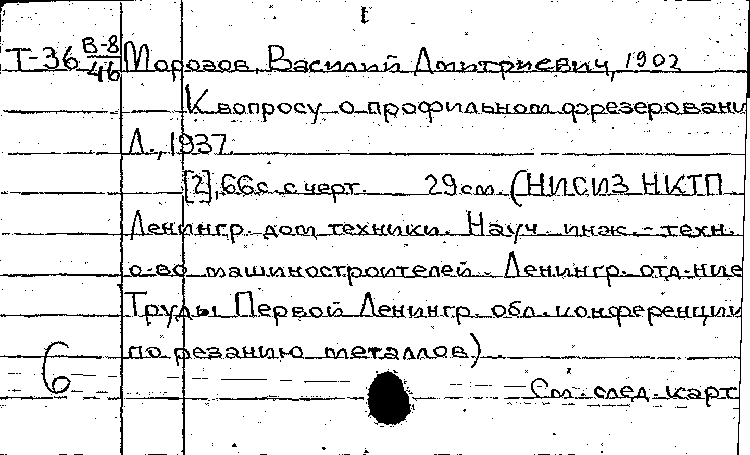 I
Т-36 В-8/46 Морозов, Василий Дмитриевич, 1902
К вопросу о профильном фрезеровани
Л., 1937.
[2], 66с. с черт. 29см. (НИСИЗ НКТП
Ленингр. дом техники. Науч. инж.-техн.
о-во машиностроителей. Ленингр. отд-ние
Труды Первой Ленингр. обл. конференции
по резанию металлов)
6
См. след. карт